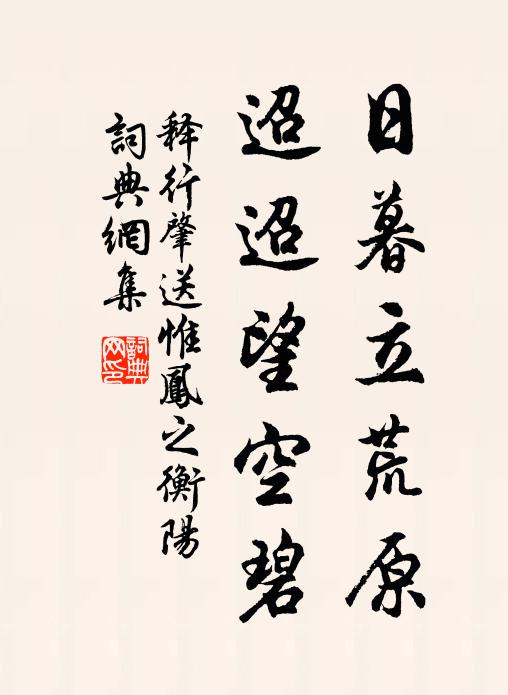 日暮立荒原
迢迢望空碧
释行肇送惟鳳之衡陽
詞典網集
詞典网印